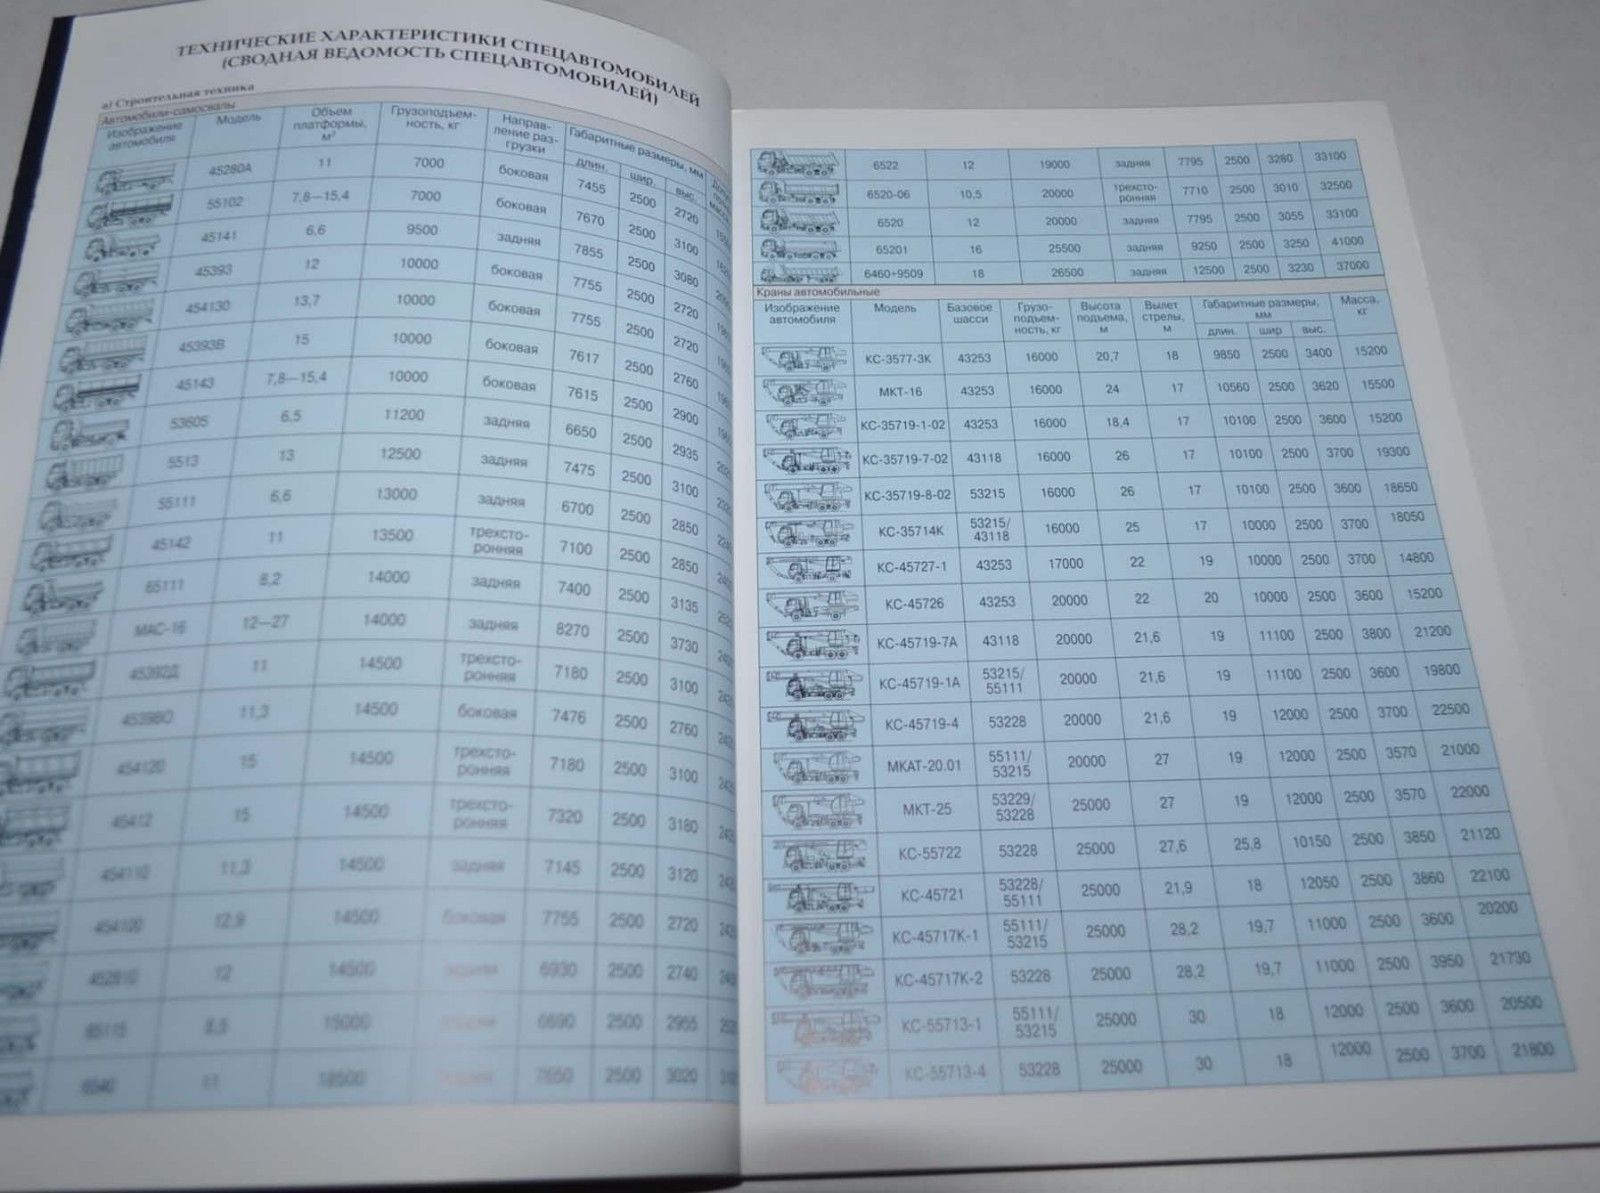 ТЕХНИЧЕСКИЕ ХАРАКТЕРИСТИКИ СПЕЦАВТОМОБИЛЕЙ
(СВОДНАЯ ВЕДОМОСТЬ СПЕЦАВТОМОБИЛЕЙ)
а) Строительная техника
Автомобили-самосвалы
Изображение автомобиля Модель Объем платформы, м³ Грузоподъем-ность, кг Направ-ление раз-грузки Габаритные размеры, мм
длин. шир. выс.
45280А 11 7000 боковая 7455 2500 2720
55102 7,8—15,4 7000 боковая 7670 2500 3100
45141 6,6 9500 задняя 7855 2500 3080
45393 12 10000 боковая 7755 2500 2720
454130 13,7 10000 боковая 7755 2500 2720
45393В 15 10000 боковая 7617 2500 2760
45143 7,8—15,4 10000 боковая 7615 2500 2900
53605 6,5 11200 задняя 6650 2500 2935
5513 13 12500 задняя 7475 2500 3100
55111 6,6 13000 задняя 6700 2500 2850
45142 11 13500 трехсто-ронняя 7100 2500 2850
65111 8,2 14000 задняя 7400 2500 3135
МАС-16 12—27 14000 задняя 8270 2500 3730
11 14500 трехсто-ронняя 7180 2500 3100
11,3 14500 боковая 7476 2500 2760
454120 15 14500 трехсто-ронняя 7180 2500 3100
45412 15 14500 трехсто-ронняя 7320 2500 3180
454110 11,3 14500 задняя 7145 2500 3120
12,9 14500 боковая 7755 2500 2720
12 14500 6930 2500 2740
65115 8,5 15000 6690 2500 2955
6540 11 18500 7650 2500 3020
6522 12 19000 задняя 7795 2500 3280 33100
6520-06 10,5 20000 трехсто-ронняя 7710 2500 3010 32500
6520 12 20000 задняя 7795 2500 3055 33100
65201 16 25500 задняя 9250 2500 3250 41000
6460+9509 18 26500 задняя 12500 2500 3230 37000
Краны автомобильные
Изображение автомобиля Модель Базовое шасси Грузо-подъем-ность, кг Высота подъема, м Вылет стрелы, м Габаритные размеры, мм Масса, кг
длин. шир выс.
КС-3577-3К 43253 16000 20,7 18 9850 2500 3400 15200
МКТ-16 43253 16000 24 17 10560 2500 3620 15500
КС-35719-1-02 43253 16000 18,4 17 10100 2500 3600 15200
КС-35719-7-02 43118 16000 26 17 10100 2500 3700 19300
КС-35719-8-02 53215 16000 26 17 10100 2500 3600 18650
КС-35714К 53215/43118 16000 25 17 10000 2500 3700 18050
КС-45727-1 43253 17000 22 19 10000 2500 3700 14800
КС-45726 43253 20000 22 20 10000 2500 3600 15200
КС-45719-7А 43118 20000 21,6 19 11100 2500 3800 21200
КС-45719-1А 53215/55111 20000 21,6 19 11100 2500 3600 19800
КС-45719-4 53228 20000 21,6 19 12000 2500 3700 22500
МКАТ-20.01 55111/53215 20000 27 19 12000 2500 3570 21000
МКТ-25 53229/53228 25000 27 19 12000 2500 3570 22000
КС-55722 53228 25000 27,6 25,8 10150 2500 3850 21120
КС-45721 53228/55111 25000 21,9 18 12050 2500 3860 22100
КС-45717К-1 55111/53215 25000 28,2 19,7 11000 2500 3600 20200
КС-45717К-2 53228 25000 28,2 19,7 11000 2500 3950 21730
КС-55713-1 55111/53215 25000 30 18 12000 2500 3600 20500
КС-55713-4 53228 25000 30 18 12000 2500 3700 21800